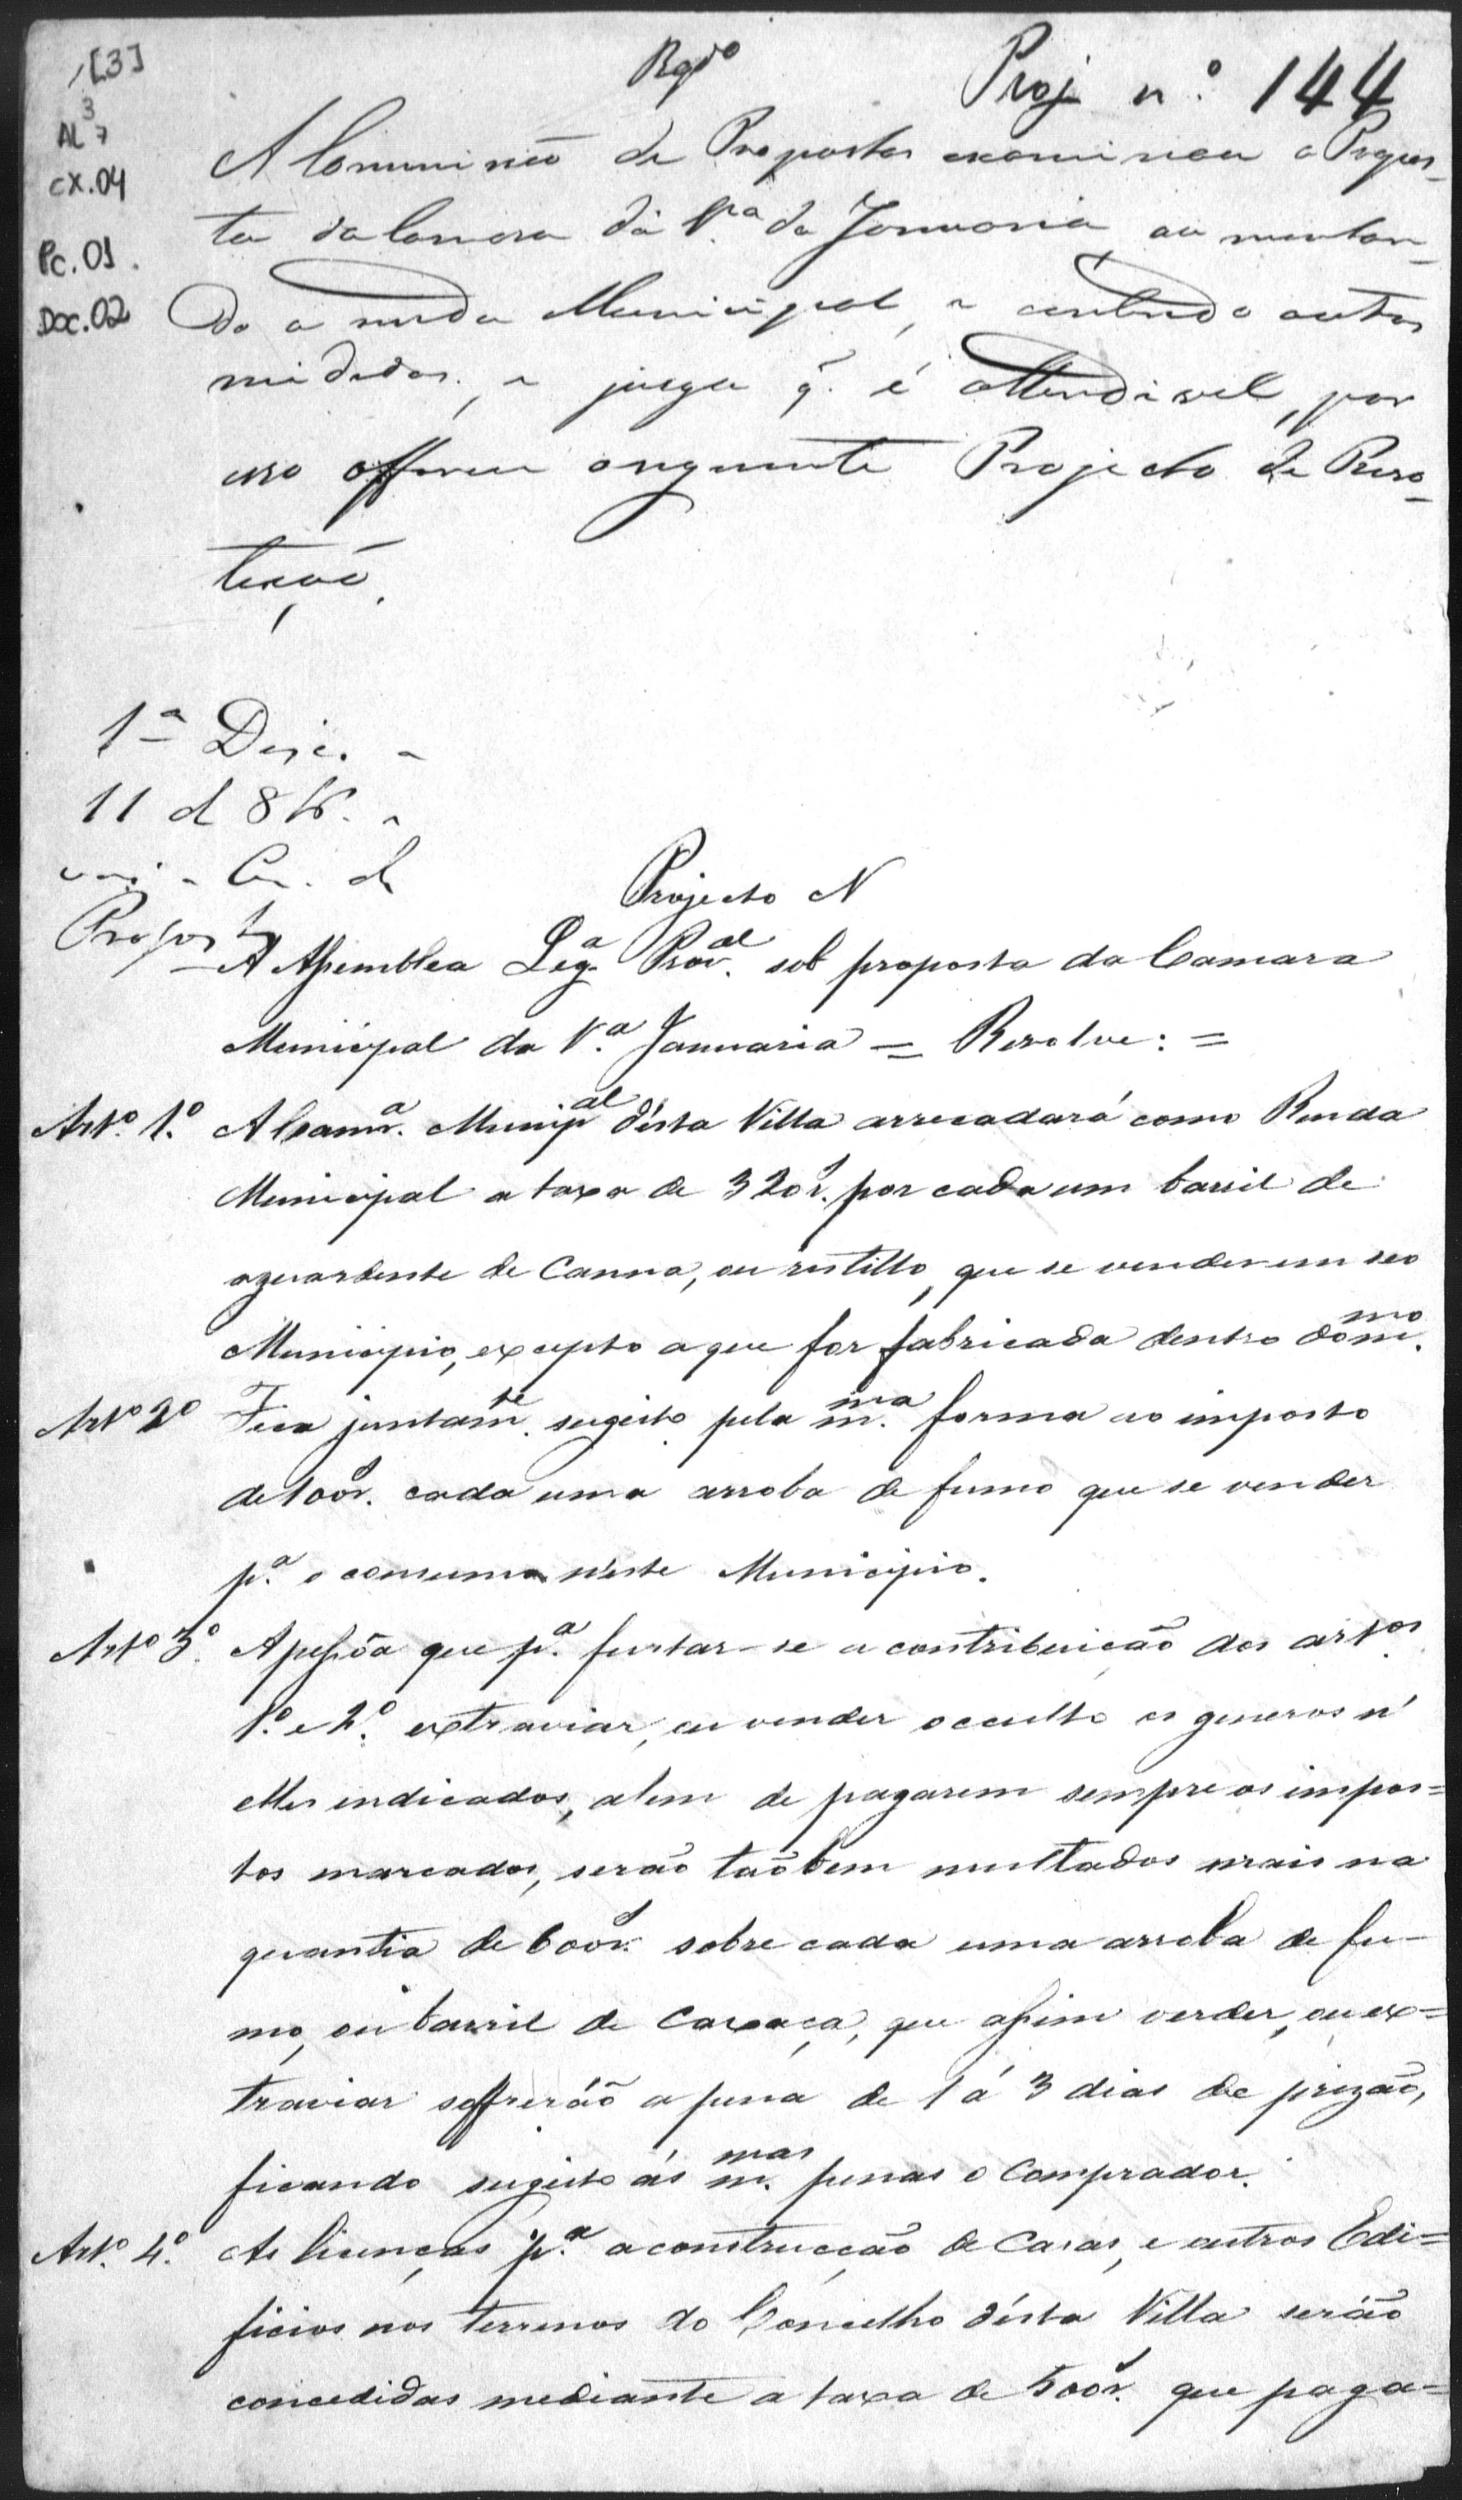 [3]
AL 3 7
CX.04
Pc.01.
Doc.02
Rgdo
Proj nº. 144
A Commissão de Propostas examinou a Propos-
ta da Camara da Vª da Januaria, augmentan-
do a renda Municipal, e contendo outras
medidas, e julga q̃. é attendivel, por
isso offerece o seguinte Projecto de Reso-
lução.
1ª Disc. a
11 d 8br. a
Com. de
Propost
Projecto N
A Assemblea Legª Proval. sob proposta da Camara
Municipal da Vª. Januaria = Resolve: =
Artº. 1º. A Camrª. Municipal d'ésta Villa arrecadará como Renda
Municipal a taxa de 320 rs. por cada um barril de
aguardente de Canna, ou restillo, que se vender em seo
Municipio, excepto a que for fabricada dentro do mmo.
Artº 2º Fica juntamte. sugeito pela mma. forma ao imposto
de 100 rs. cada uma arroba de fumo que se vender
pª. o consumo n'éste Municipio.
Artº 3º. A pessôa que pª. furtar-se a contribuição dos artos.
1º. e 2º. extraviar, ou vender occulto os generos n'
elles indicados, alem de pagarem sempre os impos=
tos marcados, serão taõbem multados mais na
quantia de 600 rs. sobre cada uma arroba de fu-
mo, ou barril de Caxaça, que assim verder, ou ex=
traviar soffrerão a pena de 1 á 3 dias de prizão,
ficando sugeito ás mmas. penas o Comprador.
Artº. 4º. As licenças pª. a construcção de Casas, e outros Edi=
ficios nos terrenos do Concelho d'ésta Villa serão
concedidas mediante a taxa de 500 rs. que paga=